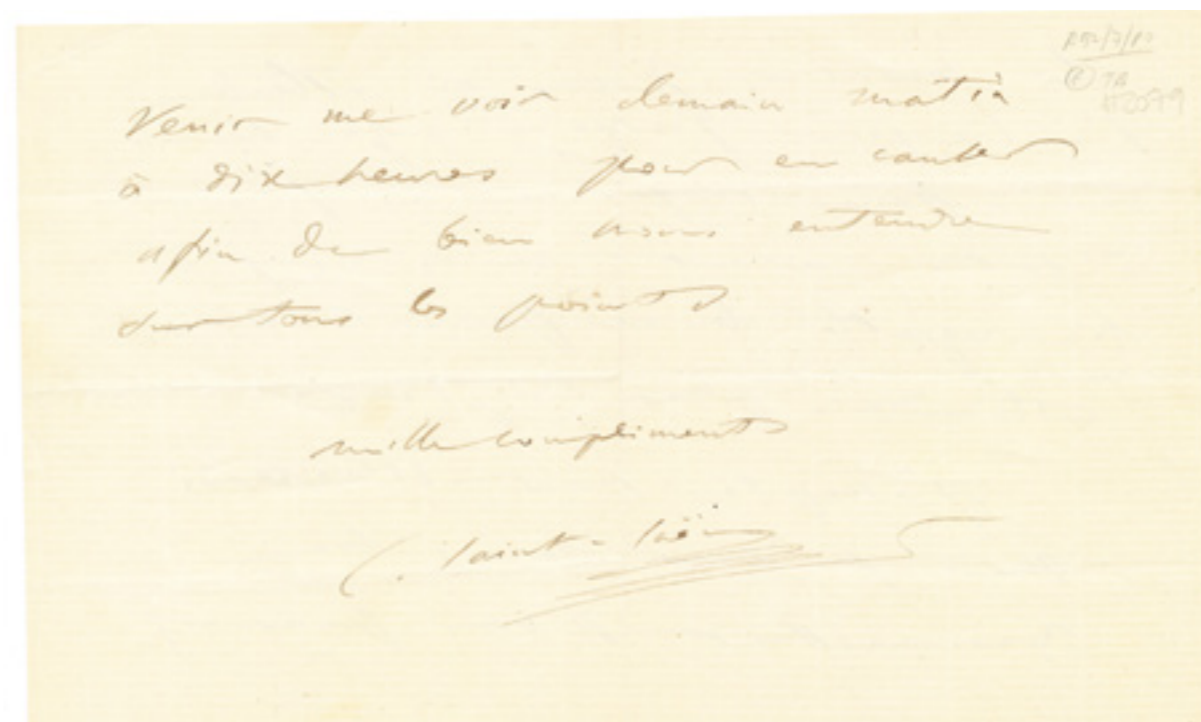 Venir me voir demain matin
à dix heures pour en causer
afin de bien nous entendre
sur tous les points
mille compliments
C. Saint-Saëns